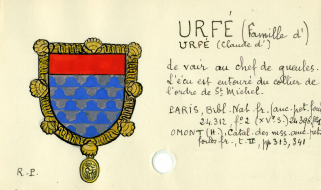 URFÉ (Famille d')
URFÉ (Claude d')
de vair au chef de gueules.
L'écu est entouré du collier de
l'ordre de St Michel.
PARIS, Bibl. Nat. fr. (anc. pet. fonds
24.312, fo 2 (XVe S.)
OMONT (H.). Catal. des mss. anc. pet.
fonds fr., t. II, pp 313, 341
R.-P.